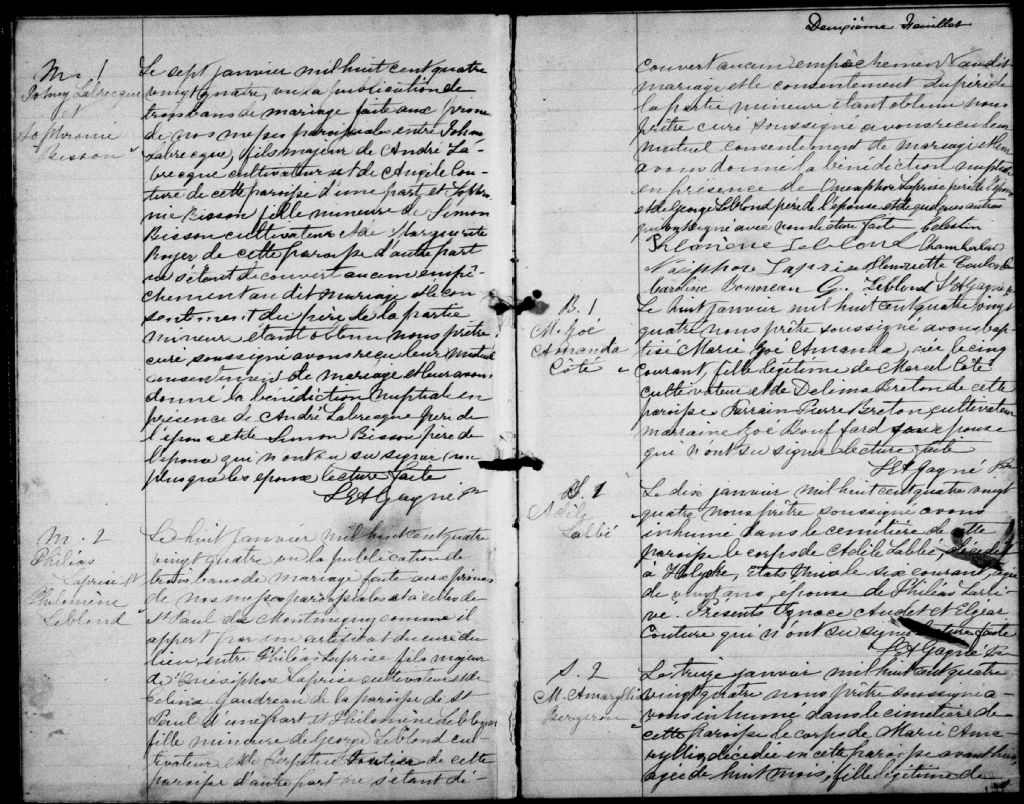 M. 1
Johny Labrecque
et
Sophronie
Bisson
Le sept janvier mil huit cent quatre
vingt quatre, vu la publication de
trois bans de mariage faite aux prone
de nos messes paroissiales entre Johny
Labrecque, fils majeur de André La-
brecque cultivateur et de Angèle Cou-
ture de cette paroisse d'une part et Sophro
nie Bisson fille mineure de Simon
Bisson cultivateur & de Marguerite
Royer de cette paroisse d'autre part
ne s'étant découvert aucun empê-
chement au dit mariage et le con
sentement du père de la partie
mineure étant obtenu nous prêtre
curé soussigné avons reçu leur mutuel
consentement de mariage et leur avons
donné la bénédiction nuptiale en
présence de André Labrecque père de
l'époux et de Simon Bisson père de
l'épouse qui n'ont su signer non
plus que les époux lecture faite
L. Gagné Ptr
M. 2
Philéas
Laprise et
Philomène
Leblond
Le huit janvier mil huit cent quatre
vingt quatre vu la publication de
trois bans de mariage faite aux prônes
de nos messes paroissiales et à celles de
St Paul du Montmigny comme il
appert par un certificat du curé du
lieu, entre Philéas Laprise fils majeur
de Onésiphore Laprise cultivateur et de
Gaudreau de la paroisse de St
Paul d'une part et Philomène Leblond
fille mineure de George Leblond cul
tivateur & de cette
paroisse d'autre part ne s'étant dé-
Deuxième Feuillet
couvert aucun empêchement au dit
mariage et le consentement du père de
la partie mineure étant obtenu nous
prêtre curé soussigné avons reçu leur
mutuel consentement de mariage & leur
avons donné la bénédiction nuptiale
en présence de Onésiphore Laprise père de l'époux
et de George Leblond père de l'épouse et de quelques autres
qui ont signé avec nous lecture faite Celestin
Philomène Leblond Chamberlan
Naiphor Laprise Henriette
Caroline G. Leblond Gagné
B. 1
M. Zoé
Amanda
Côté
Le huit janvier mil huit cent quatre vingt
quatre nous prêtre soussigné avons bap
tisé Marie Zoé Amanda, née le cinq
courant, fille légitime de Marcel Côté
cultivateur et de Delima Breton de cette
paroisse Parrain Pierre Breton cultivateur
marraine Zoé Bouffard son épouse
qui n'ont su signer lecture faite
Gagné Ptr
S. 1
Adèle
Labbé
Le dix janvier mil huit cent quatre vingt
quatre nous prêtre soussigné avons
inhumé dans le cimetière de cette
paroisse le corps de Adèle Labbé, décédée
à Holyoke, États Unis le six courant, agée
de vingt ans, épouse de Philéas Lari-
vé. Présents Ignace Audet et Elzéar
Couture qui n'ont su signer lecture faite
Gagné Ptr
S. 2
M. Amaryllis
Bergeron
Le treize janvier mil huit cent quatre
vingt quatre nous prêtre soussigné a-
vons inhumé dans le cimetière de
cette paroisse le corps de Marie Ama-
ryllis, décédée en cette paroisse avant hier
agée de huit mois, fille légitime de